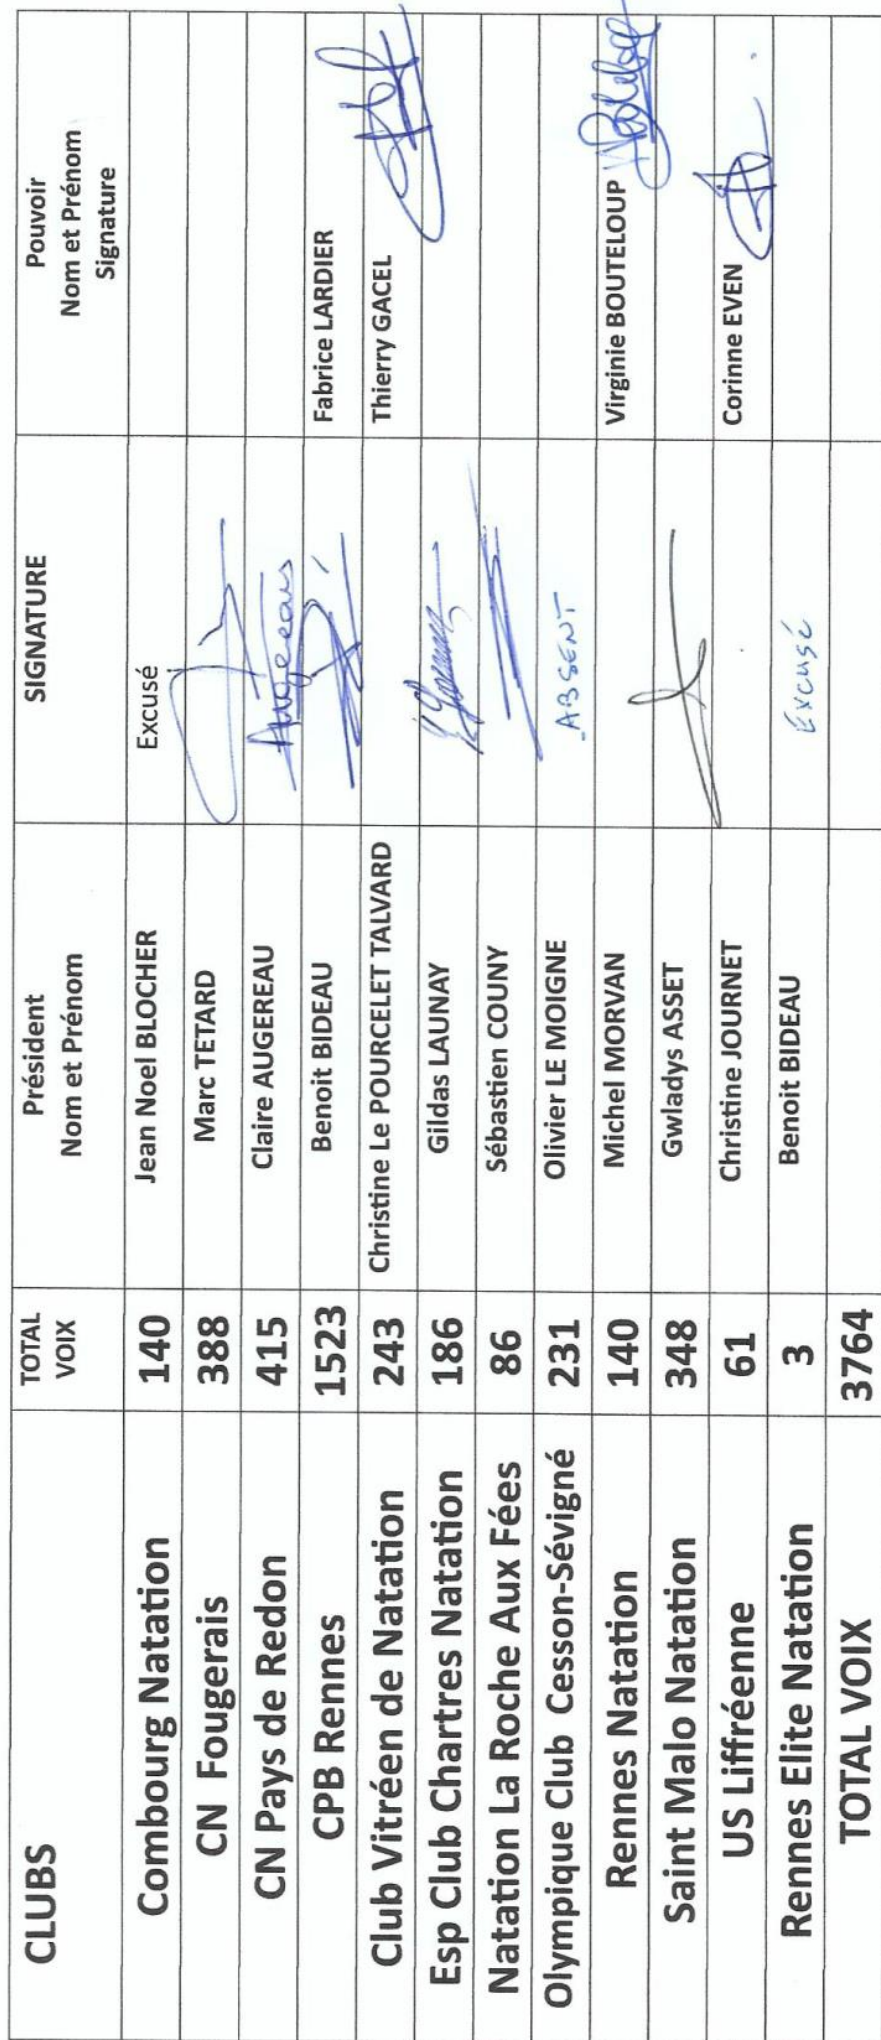 CLUBS TOTAL VOIX Président Nom et Prénom SIGNATURE Pouvoir Nom et Prénom Signature
Combourg Natation 140 Jean Noel BLOCHER Excusé
CN Fougerais 388 Marc TETARD
CN Pays de Redon 415 Claire AUGEREAU Augereau
CPB Rennes 1523 Benoit BIDEAU Fabrice LARDIER
Club Vitréen de Natation 243 Christine Le POURCELET TALVARD Thierry GACEL
Esp Club Chartres Natation 186 Gildas LAUNAY
Natation La Roche Aux Fées 86 Sébastien COUNY
Olympique Club Cesson-Sévigné 231 Olivier LE MOIGNE ABSENT
Rennes Natation 140 Michel MORVAN Virginie BOUTELOUP
Saint Malo Natation 348 Gwladys ASSET
US Liffréenne 61 Christine JOURNET Corinne EVEN
Rennes Elite Natation 3 Benoit BIDEAU Excusé
TOTAL VOIX 3764